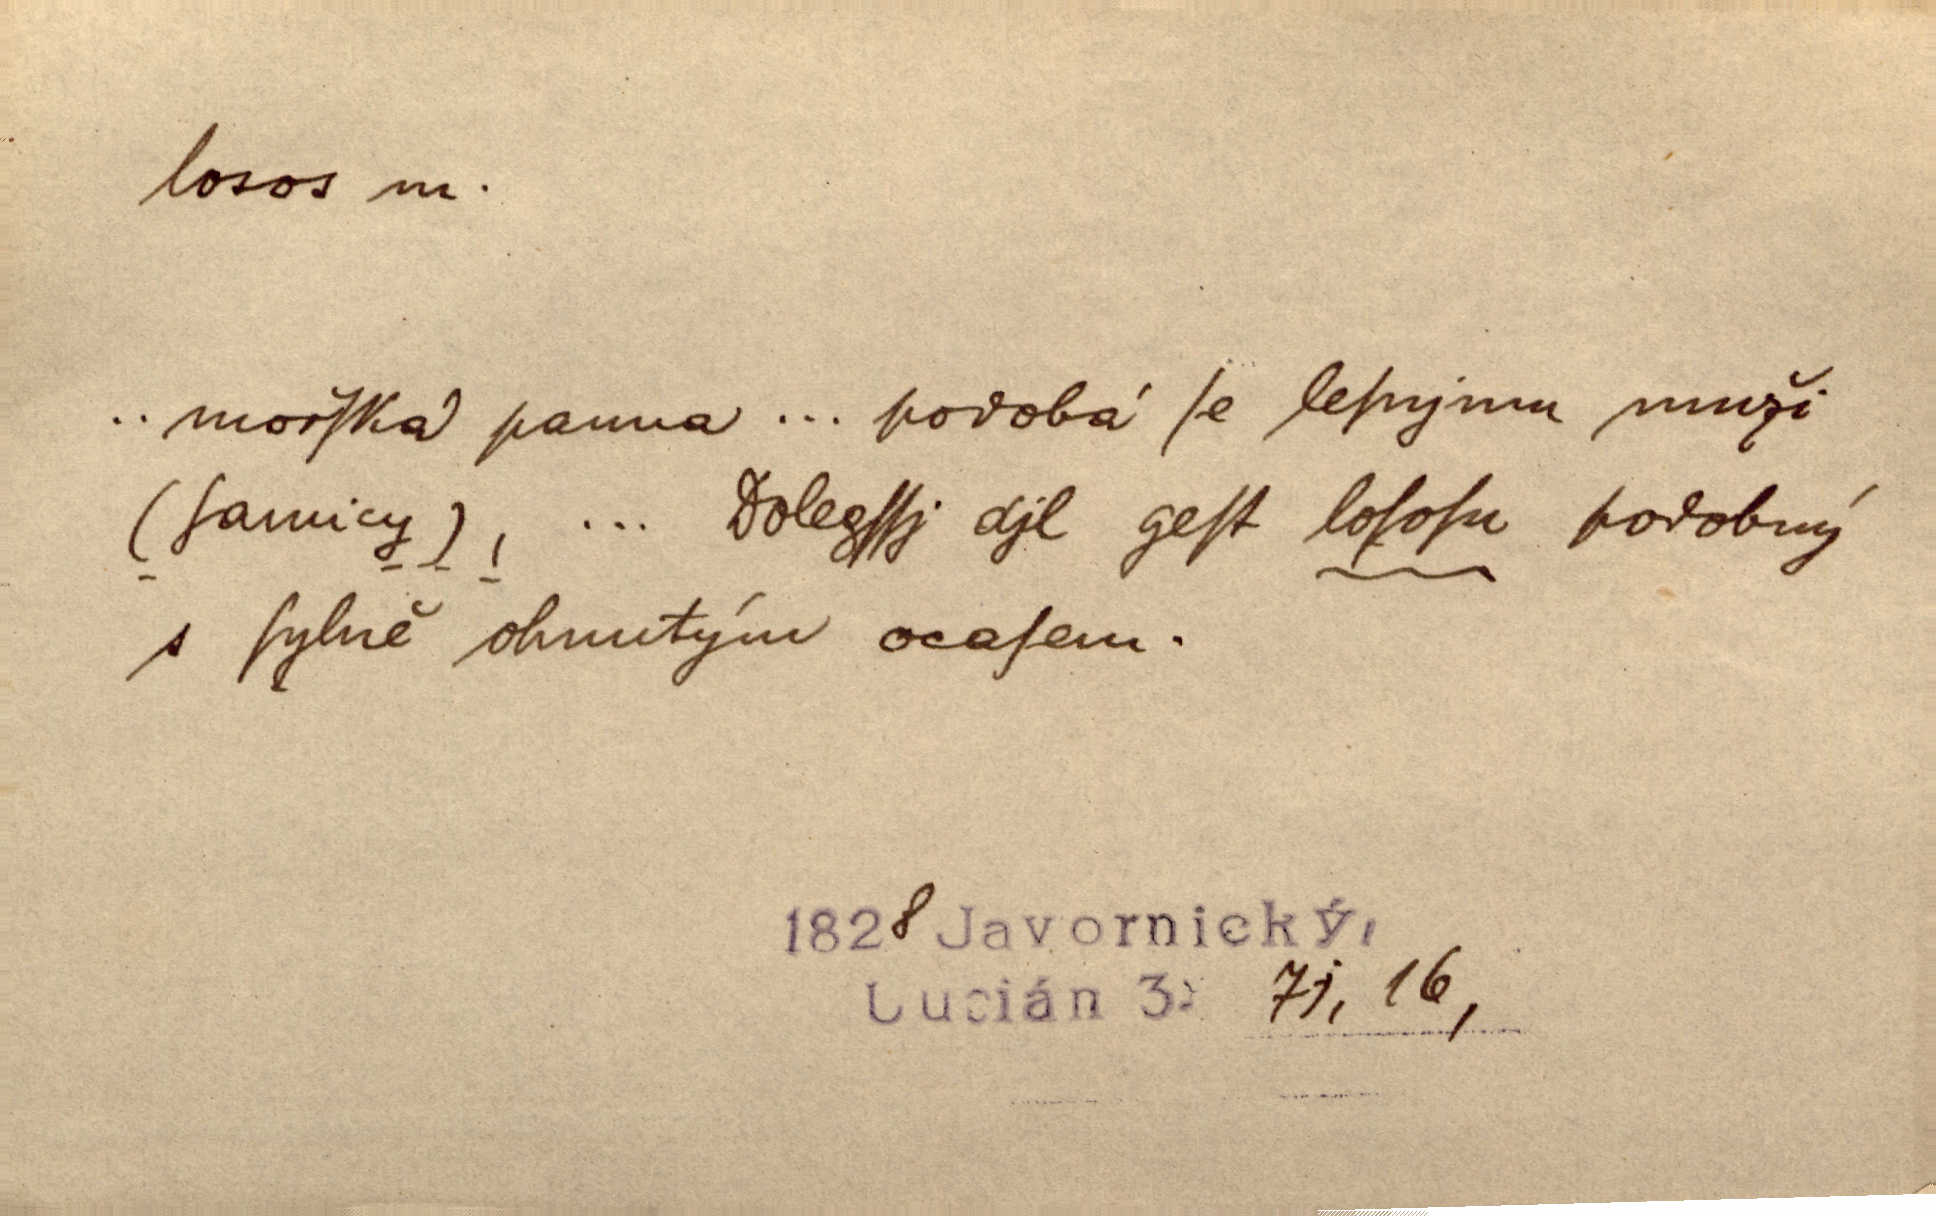 losos m.
.. mořſká panna ... podobá ſe leſnjmu muži
(ſamicy), ... Dolegſſj djl geſt loſoſu podobný
s ſylně ohnutým ocaſem.
1828 Javornický,
Lucián 3: 7j, 16,